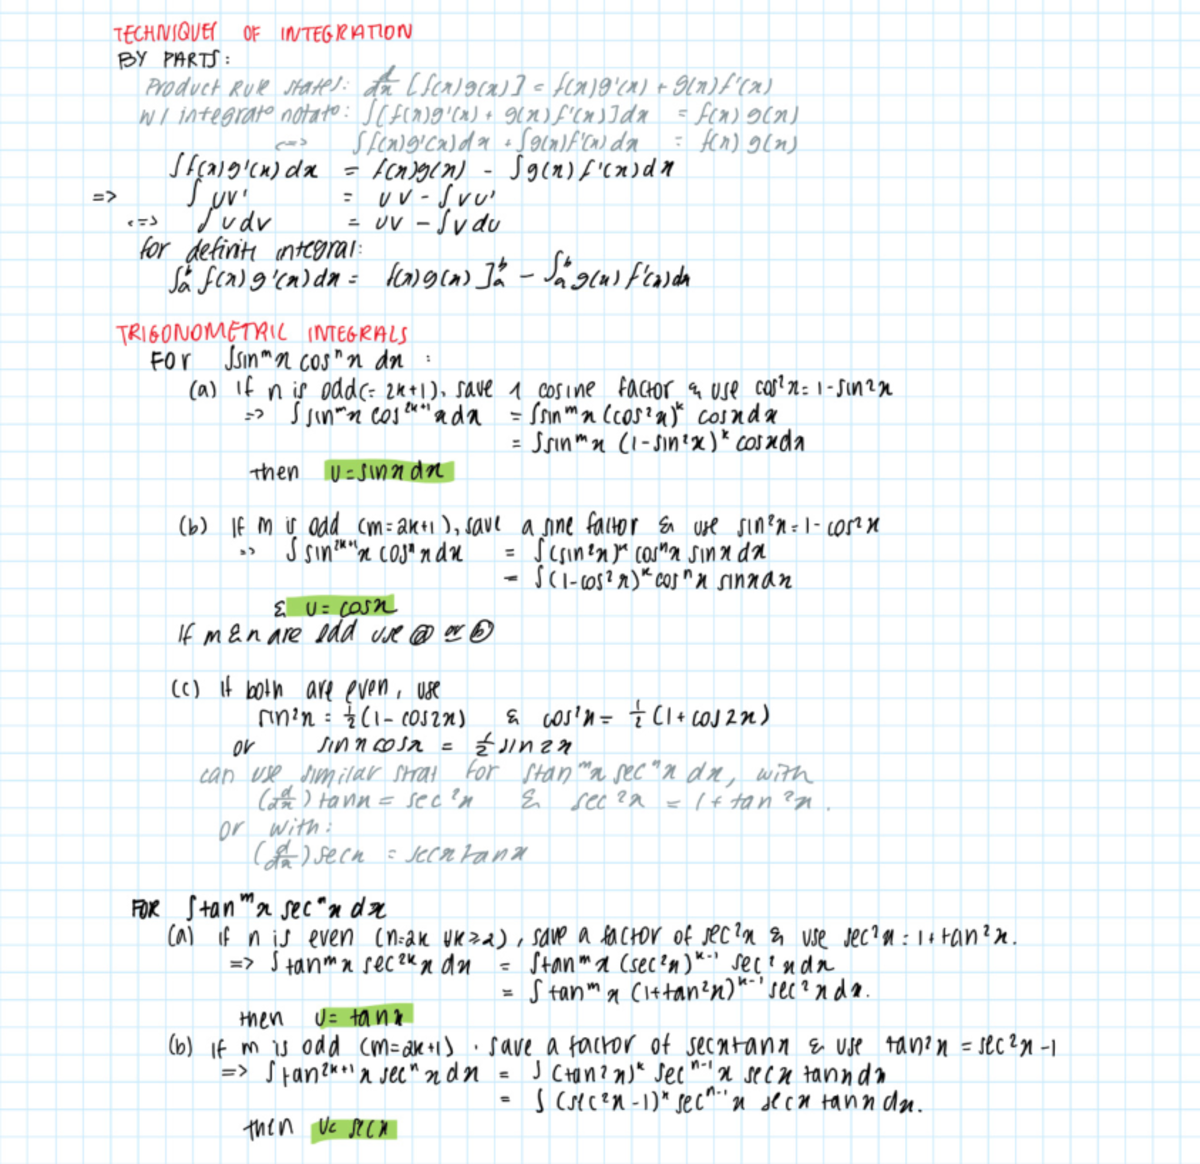 TECHNIQUES OF INTEGRATION
BY PARTS:
Product Rule states: d/dx [f(x)g(x)] = f(x)g'(x) + g(x)f'(x)
w/ integratᵒ notatᵒ: ∫[f(x)g'(x) + g(x)f'(x)]dx = f(x)g(x)
<=> ∫f(x)g'(x)dx + ∫g(x)f'(x)dx = f(x)g(x)
∫f(x)g'(x)dx = f(x)g(x) - ∫g(x)f'(x)dx
=> ∫uv' = uv - ∫vu'
<=> ∫udv = uv - ∫vdu
for definite integral:
∫ₐᵇ f(x)g'(x)dx = f(x)g(x)]ₐᵇ - ∫ₐᵇ g(x)f'(x)dx
TRIGONOMETRIC INTEGRALS
FOR ∫sinᵐx cosⁿx dx :
(a) If n is odd (= 2k+1), save 1 cosine factor & use cos²x = 1-sin²x
=> ∫sinᵐx cos²ᵏ⁺¹x dx = ∫sinᵐx (cos²x)ᵏ cosxdx
= ∫sinᵐx (1-sin²x)ᵏ cosxdx
then u=sinxdx
(b) If m is odd (m=2k+1), save a sine factor & use sin²x = 1-cos²x
=> ∫sin²ᵏ⁺¹x cosⁿx dx = ∫(sin²x)ᵏ cosⁿx sinx dx
= ∫(1-cos²x)ᵏ cosⁿx sinxdx
& u=cosx
If m & n are odd use ⓐ or ⓑ
(c) if both are even, use
sin²x = 1/2(1-cos2x) & cos²x = 1/2(1+cos2x)
or sinxcosx = 1/2 sin2x
can use similar strat for ∫tanᵐx secⁿx dx, with
(d/dx)tanx = sec²x & sec²x = 1+tan²x.
or with:
(d/dx)secx = secxtanx
FOR ∫tanᵐx secⁿx dx
(a) if n is even (n=2k ∀k≥2), save a factor of sec²x & use sec²x = 1+tan²x.
=> ∫tanᵐx sec²ᵏx dx = ∫tanᵐx (sec²x)ᵏ⁻¹ sec²xdx
= ∫tanᵐx (1+tan²x)ᵏ⁻¹ sec²xdx.
then u=tanx
(b) if m is odd (m=2k+1), save a factor of secxtanx & use tan²x = sec²x-1
=> ∫tan²ᵏ⁺¹x secⁿxdx = ∫(tan²x)ᵏ secⁿ⁻¹x secx tanxdx
= ∫(sec²x-1)ᵏ secⁿ⁻¹x secx tanxdx.
then u= secx